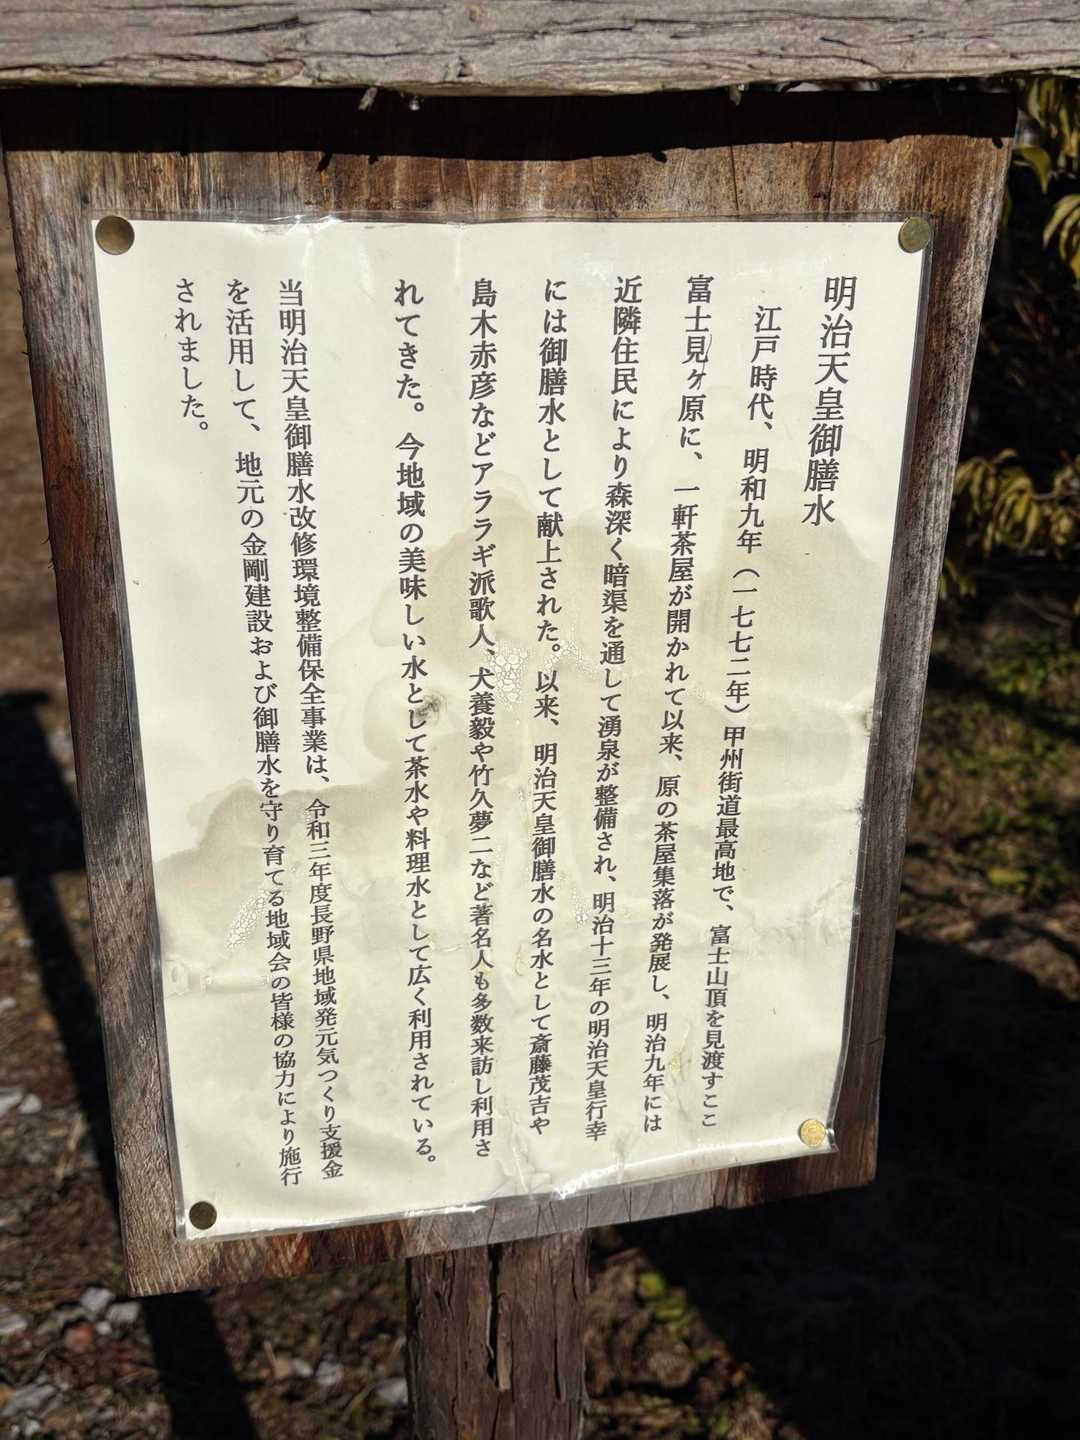 明治天皇御膳水
江戸時代、明和九年（一七七二年）甲州街道最高地で、富士山頂を見渡すここ
富士見ヶ原に、一軒茶屋が開かれて以来、原の茶屋集落が発展し、明治九年には
近隣住民により森深く暗渠を通して湧泉が整備され、明治十三年の明治天皇行幸
には御膳水として献上された。以来、明治天皇御膳水の名水として斎藤茂吉や
島木赤彦などアララギ派歌人、犬養毅や竹久夢二など著名人も多数来訪し利用さ
れてきた。今地域の美味しい水として茶水や料理水として広く利用されている。
当明治天皇御膳水改修環境整備保全事業は、令和三年度長野県地域発元気つくり支援金
を活用して、地元の金剛建設および御膳水を守り育てる地域会の皆様の協力により施行
されました。